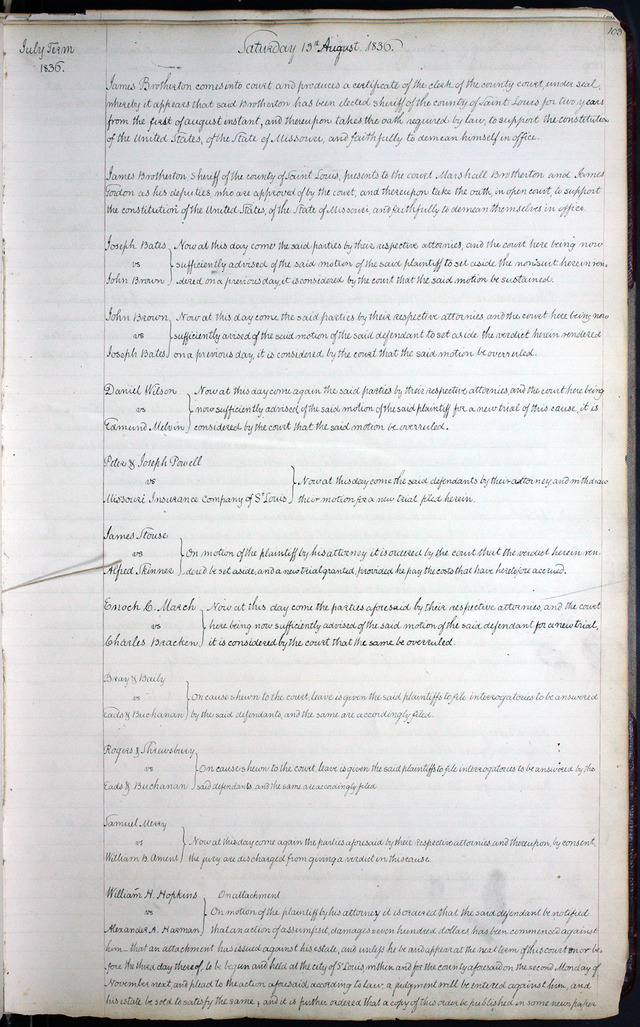 103
July Term
1836.
Saturday 13th August 1836.
James Brotherton comes into court and produces a certificate of the clerk of the county court, under seal,
whereby it appears that said Brotherton has been elected sheriff of the county of Saint Louis for two years
from the first of august instant, and thereupon takes the oath required by law, to support the constitution
of the United States, of the State of Missouri, and faithfully to demean himself in office.
James Brotherton, sheriff of the county of Saint Louis, presents to the court Marshall Brotherton and James
Gordon as his deputies, who are approved of by the court, and thereupon take the oath, in open court, to support
the constitution of the United States, of the State of Missouri, and faithfully to demean themselves in office.
Joseph Bates Now at this day come the said parties by their respective attornies, and the court here being now
vs sufficiently advised of the said motion of the said plaintiff to set aside the nonsuit herein ren-
John Brown dered on a previous day, it is considered by the court that the said motion be sustained.
John Brown Now at this day come the said parties by their respective attornies, and the court here being now
vs sufficiently avised of the said motion of the said defendant to set aside the verdict herein rendered
Joseph Bates on a previous day, it is considered by the court that the said motion be overruled.
Daniel Wilson Now at this day come again the said parties by their respective attornies, and the court here being
vs now sufficiently advised of the said motion of the said plaintiff for a new trial of this cause, it is
Edmund Melvin considered by the court that the said motion be overruled.
Peter & Joseph Powell
vs Now at this day come the said defendants by their attorney, and withdraw
Missouri Insurance Company of St Louis their motion for a new trial filed herein.
James Stouse
vs On motion of the plaintiff by his attorney it is ordered by the court that the verdict herein ren-
Alfred Skinner dered be set aside, and a new trial granted, provided he pay the costs that have heretofore accrued.
Enoch C. March Now at this day come the parties aforesaid by their respective attornies, and the court
vs here being now sufficiently advised of the said motion of the said defendant for a new trial,
Charles Bracken it is considered by the court that the same be overruled.
Bray & Baily
vs On cause shewn to the court, leave is given the said plaintiffs to file interrogatories to be answered
Eads & Buchanan by the said defendants, and the same are accordingly filed.
Rogers & Shrewsbury
vs On cause shewn to the court, leave is given the said plaintiffs to file interrogatories to be answered by the
Eads & Buchanan said defendants, and the same are accordingly filed
Samuel Merry
vs Now at this day come again the parties aforesaid by their respective attornies, and thereupon, by consent,
William B. Ament the jury are discharged from giving a verdict in this cause.
William H. Hopkins On attachment
vs On motion of the plaintiff by his attorney it is ordered that the said defendant be notified
Alexander A. Harman that an action of assumpsit, damages seven hundred dollars, has been commenced against
him — that an attachment has issued against his estate, and unless he be and appear at the next term of this court on or be-
fore the third day thereof, to be begun and held at the city of St Louis within and for the county aforesaid on the second Monday of
November next, and plead to the action aforesaid, according to law, a judgment will be entered against him, and
his estate be sold to satisfy the same, and it is further ordered that a copy of this order be published in some newspaper